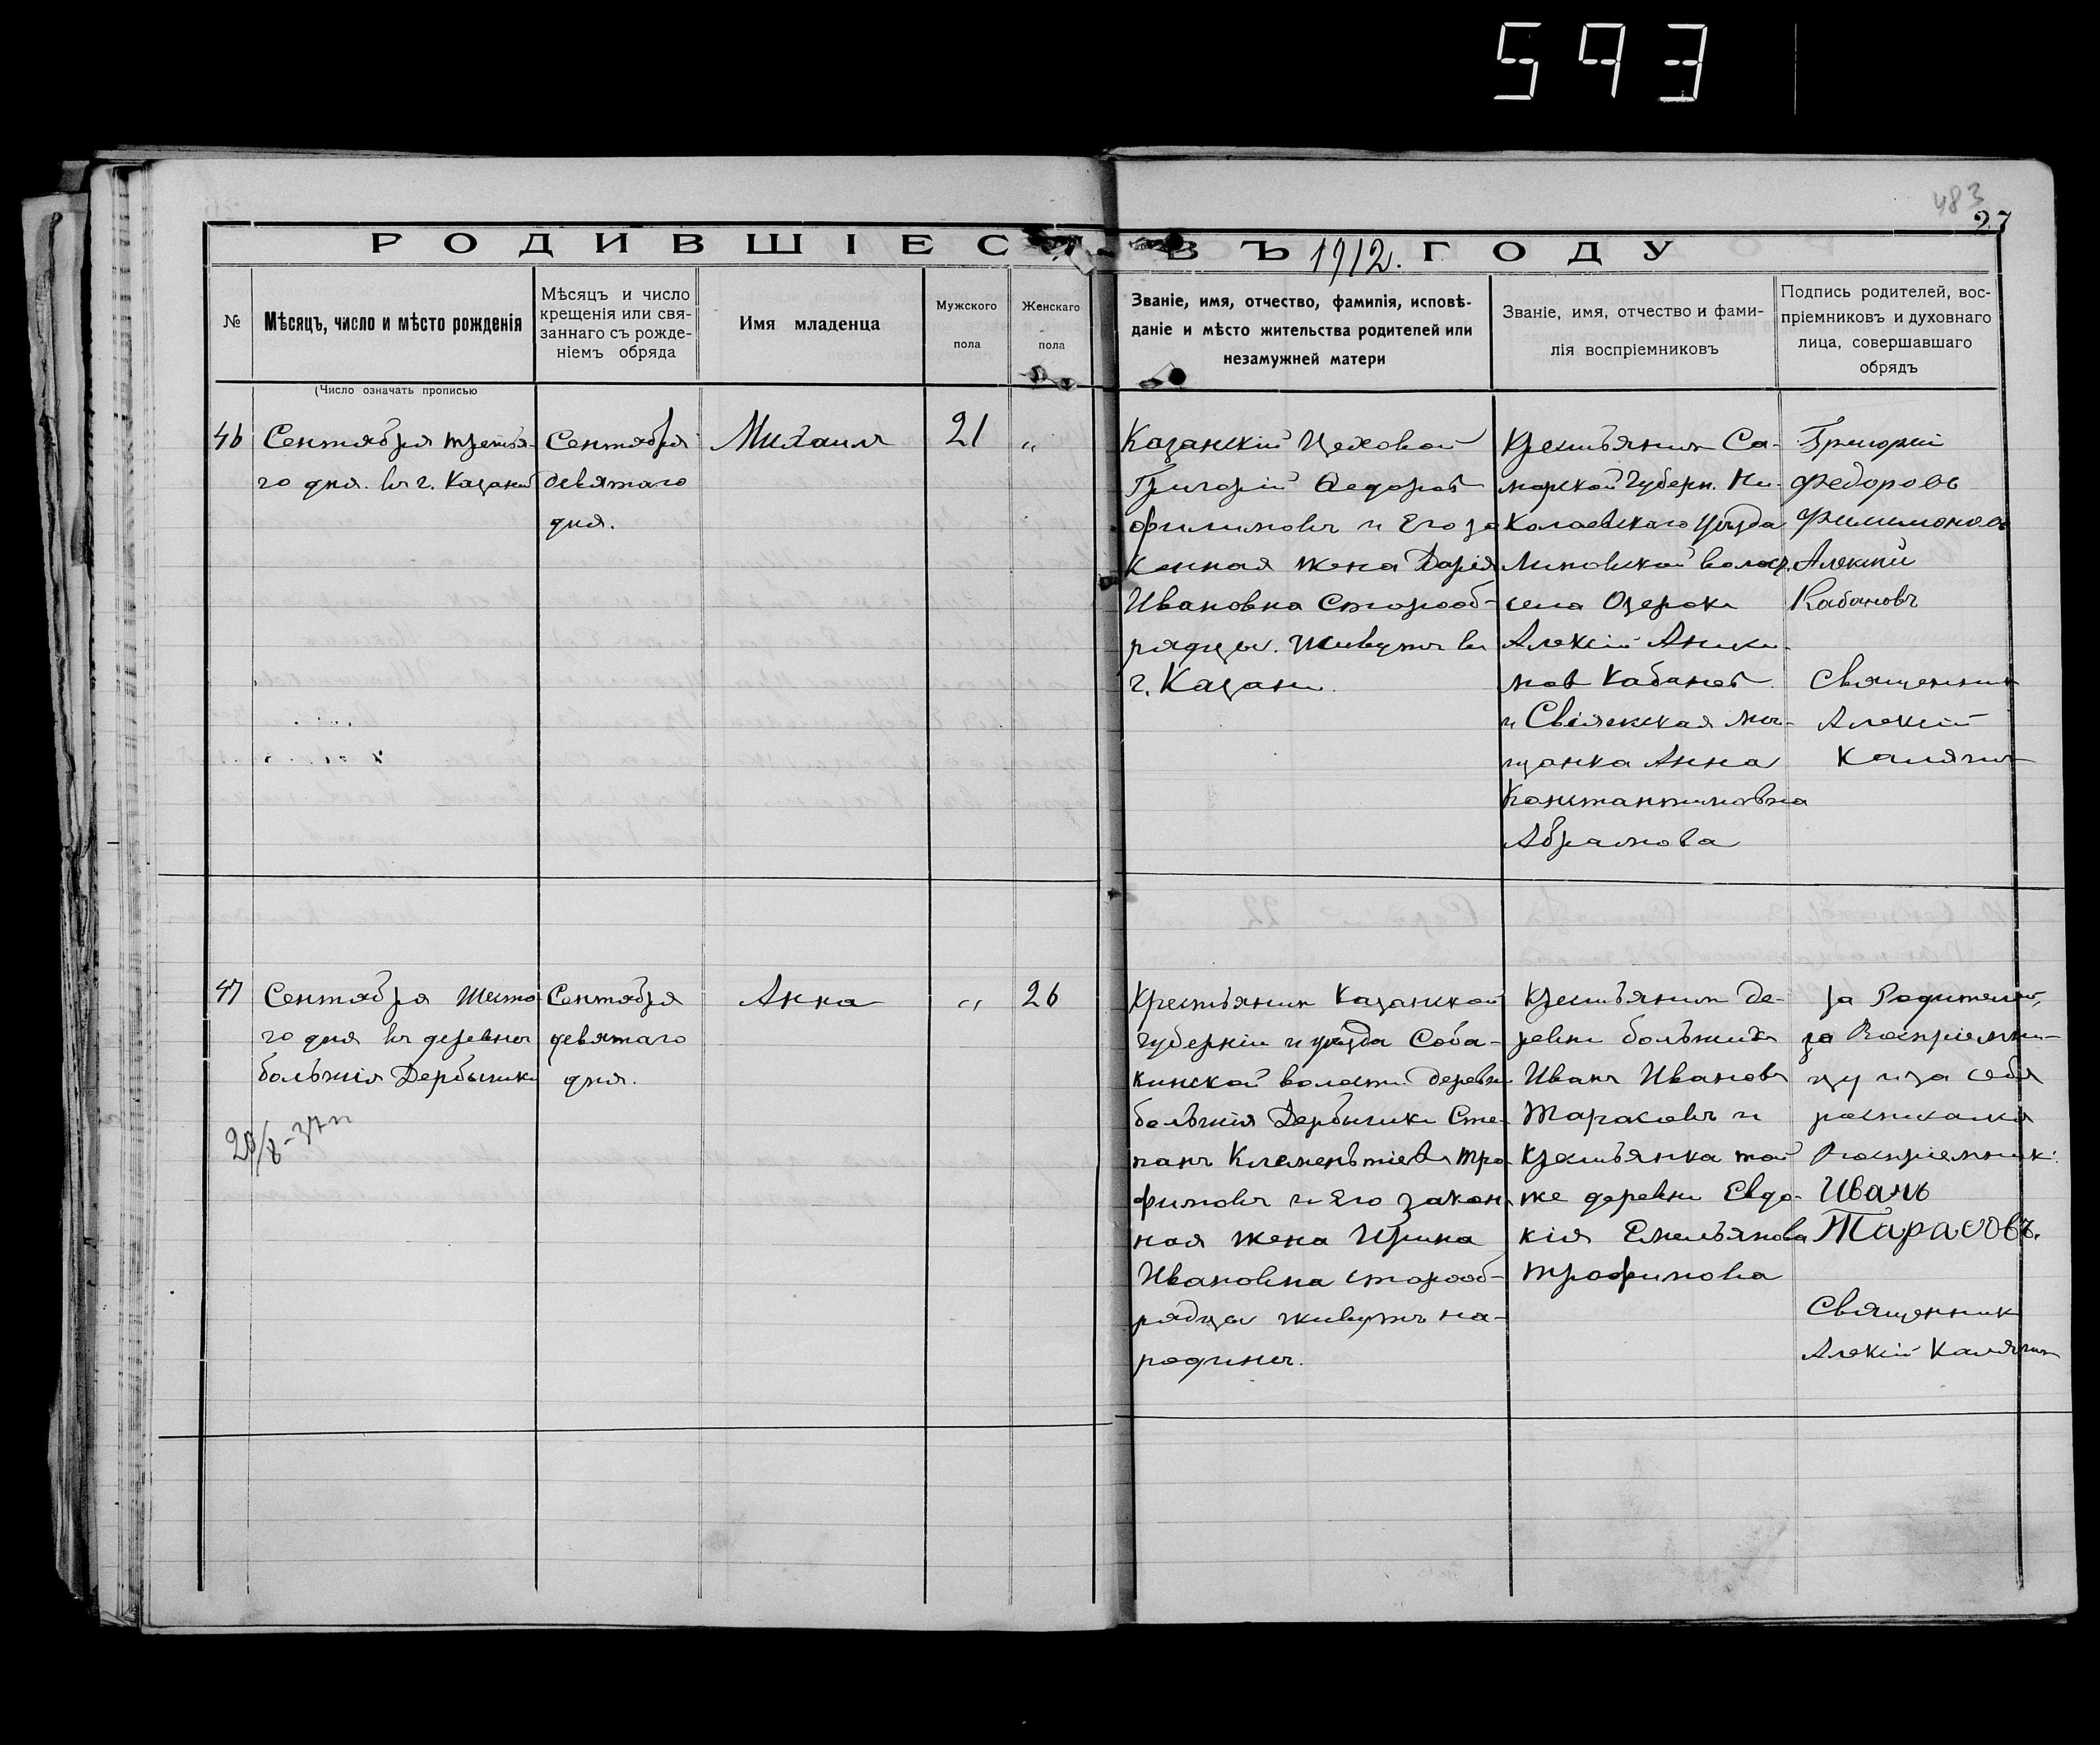 593
483
27
РОДИВШІЕСЯ ВЪ 1912. ГОДУ
№
Мѣсяцъ, число и мѣсто рожденія
Мѣсяцъ и число
крещенія или свя-
заннаго съ рожде-
ніемъ обряда
Имя младенца
Мужского
пола
Женскаго
пола
Званіе, имя, отчество, фамилія, исповѣ-
даніе и мѣсто жительства родителей или
незамужней матери
Званіе, имя, отчество и фами-
лія воспріемниковъ
Подпись родителей, вос-
пріемниковъ и духовнаго
лица, совершавшаго
обрядъ
(Число означать прописью
46
Сентября третья-
го дня. въ г. Казани
Сентября
девятаго
дня.
Михаилъ
21
„
Казанскій Цеховой
Григорій Ѳедоровъ
Филимоновъ и Его за
конная жена Дарія
Ивановна Старооб-
рядцы. Живутъ въ
г. Казани.
Крестьянинъ Са-
марской Губерн. Ни-
колаевскаго Уѣзда
Липовской волост.
села Озерокъ
Алексій Аники-
новъ Кабановъ
и Свіяжская мѣ-
щанка Анна
Константиновна
Абрамова
Григорій
Федоровъ
Филимоновъ
Алексѣй
Кабановъ
Священникъ
Алексій
Калягинъ
47
Сентября Шесто
го дня въ деревнѣ
большія Дербышки
29/8-37 г
Сентября
девятаго
дня.
Анна
„
26
Крестьянинъ Казанской
Губерніи и уѣзда Соба-
кинской волости деревни
большія Дербышки Сте-
панъ Клементіевъ Тро-
фимовъ и Его закон-
ная жена Ирина
Ивановна старооб-
рядцы живутъ на-
родинѣ.
Крестьянинъ де-
ревни большихъ
Иванъ Ивановъ
Тарасовъ и
Крестьянка той
же деревни Евдо-
кія Емельянова
Трофимова
За Родителей,
за Воспріемни-
цу и за себя
росписался
Воспріемник:
Иванъ
Тарасовъ.
Священник
Алексій Калягинъ